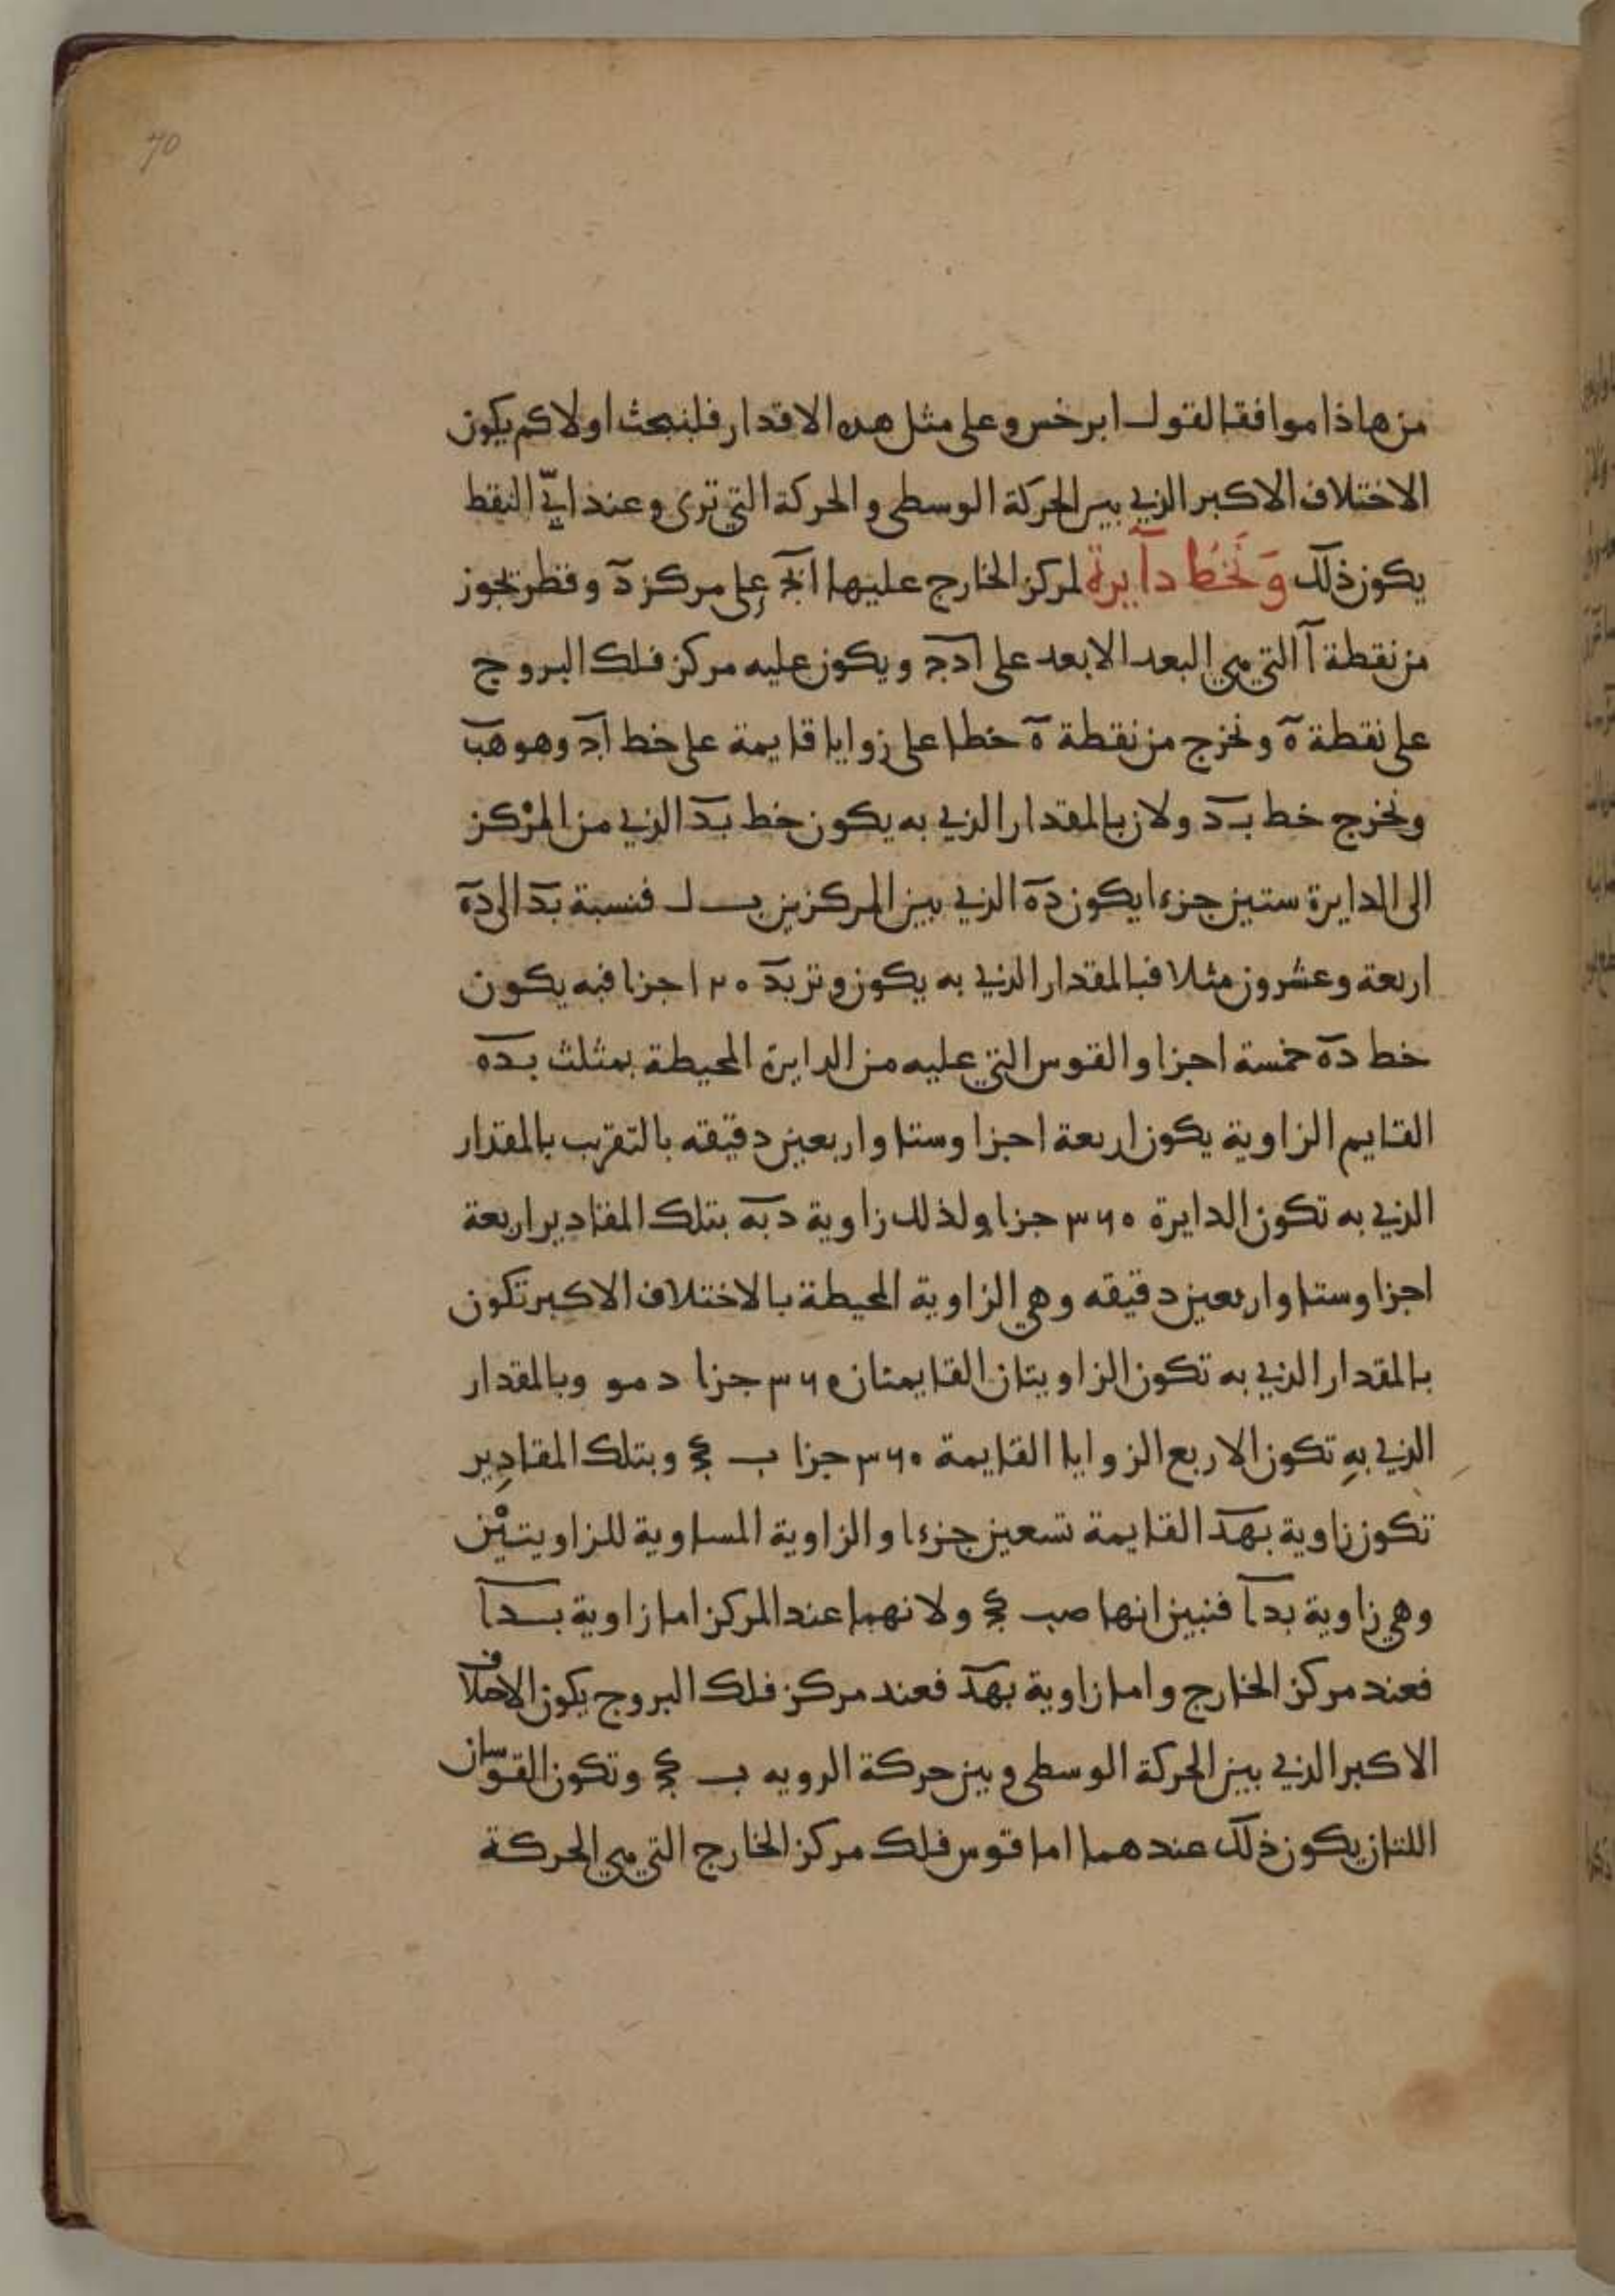 70
من هاذا موافقا لقول ابرخس وعلى مثل هذه الاقدار فلنبحث اولا كم يكون
الاختلاف الاكبر الذي بين الحركة الوسطى والحركة التي ترى وعند ايّ النقط
يكون ذلك وَنَخُط دآيرة لمركز الخارج عليها ابج على مركز د وقطر يجوز
من نقطة آ التي هي البعد الابعد على ادج ويكون عليه مركز فلك البروج
على نقطة ه ونخرج من نقطة ه خطا على زوايا قايمة على خط اد وهو هب
ونخرج خط بد ولان بالمقدار الذي به يكون خط بد الذي من المرْكز
الى الدايرة ستين جزءا يكون ده الذي بين المركزين ب ل فنسبة بد الى ده
اربعة وعشرون مثلا فبالمقدار الذي به يكون وتر بد ١٢٠ جزا فبه يكون
خط ده خمسة اجزا والقوس التي عليه من الدايرة المحيطة بمثلث بده
القايم الزاوية يكون اربعة اجزا وستا واربعين دقيقه بالتقريب بالمقدار
الذي به تكون الدايرة ٣٦٠ جزا ولذلك زاوية دبه بتلك المقادير اربعة
اجزا وستا واربعين دقيقه وهي الزاوية المحيطة بالاختلاف الاكبر تكون
بالمقدار الذي به تكون الزاويتان القايمتان ٣٦٠ جزا د مو وبالمقدار
الذي بهِ تكون الاربع الزوايا القايمة ٣٦٠ جزا ب كج وبتلك المقادِير
تكون زاوية بهد القايمة تسعين جزءا والزاوية المساوية للزاويتيْن
وهي زاوية بدا فنبين انها صب كج ولانهما عند المركز اما زاوية بدا
فعند مركز الخارج واما زاوية بهد فعند مركز فلك البروج يكون الاختلاف
الاكبر الذي بين الحركة الوسطى وبين حركة الرويه ب كج وتكون القوسان
اللتان يكون ذلك عندهما اما قوس فلك مركز الخارج التي هي الحركة